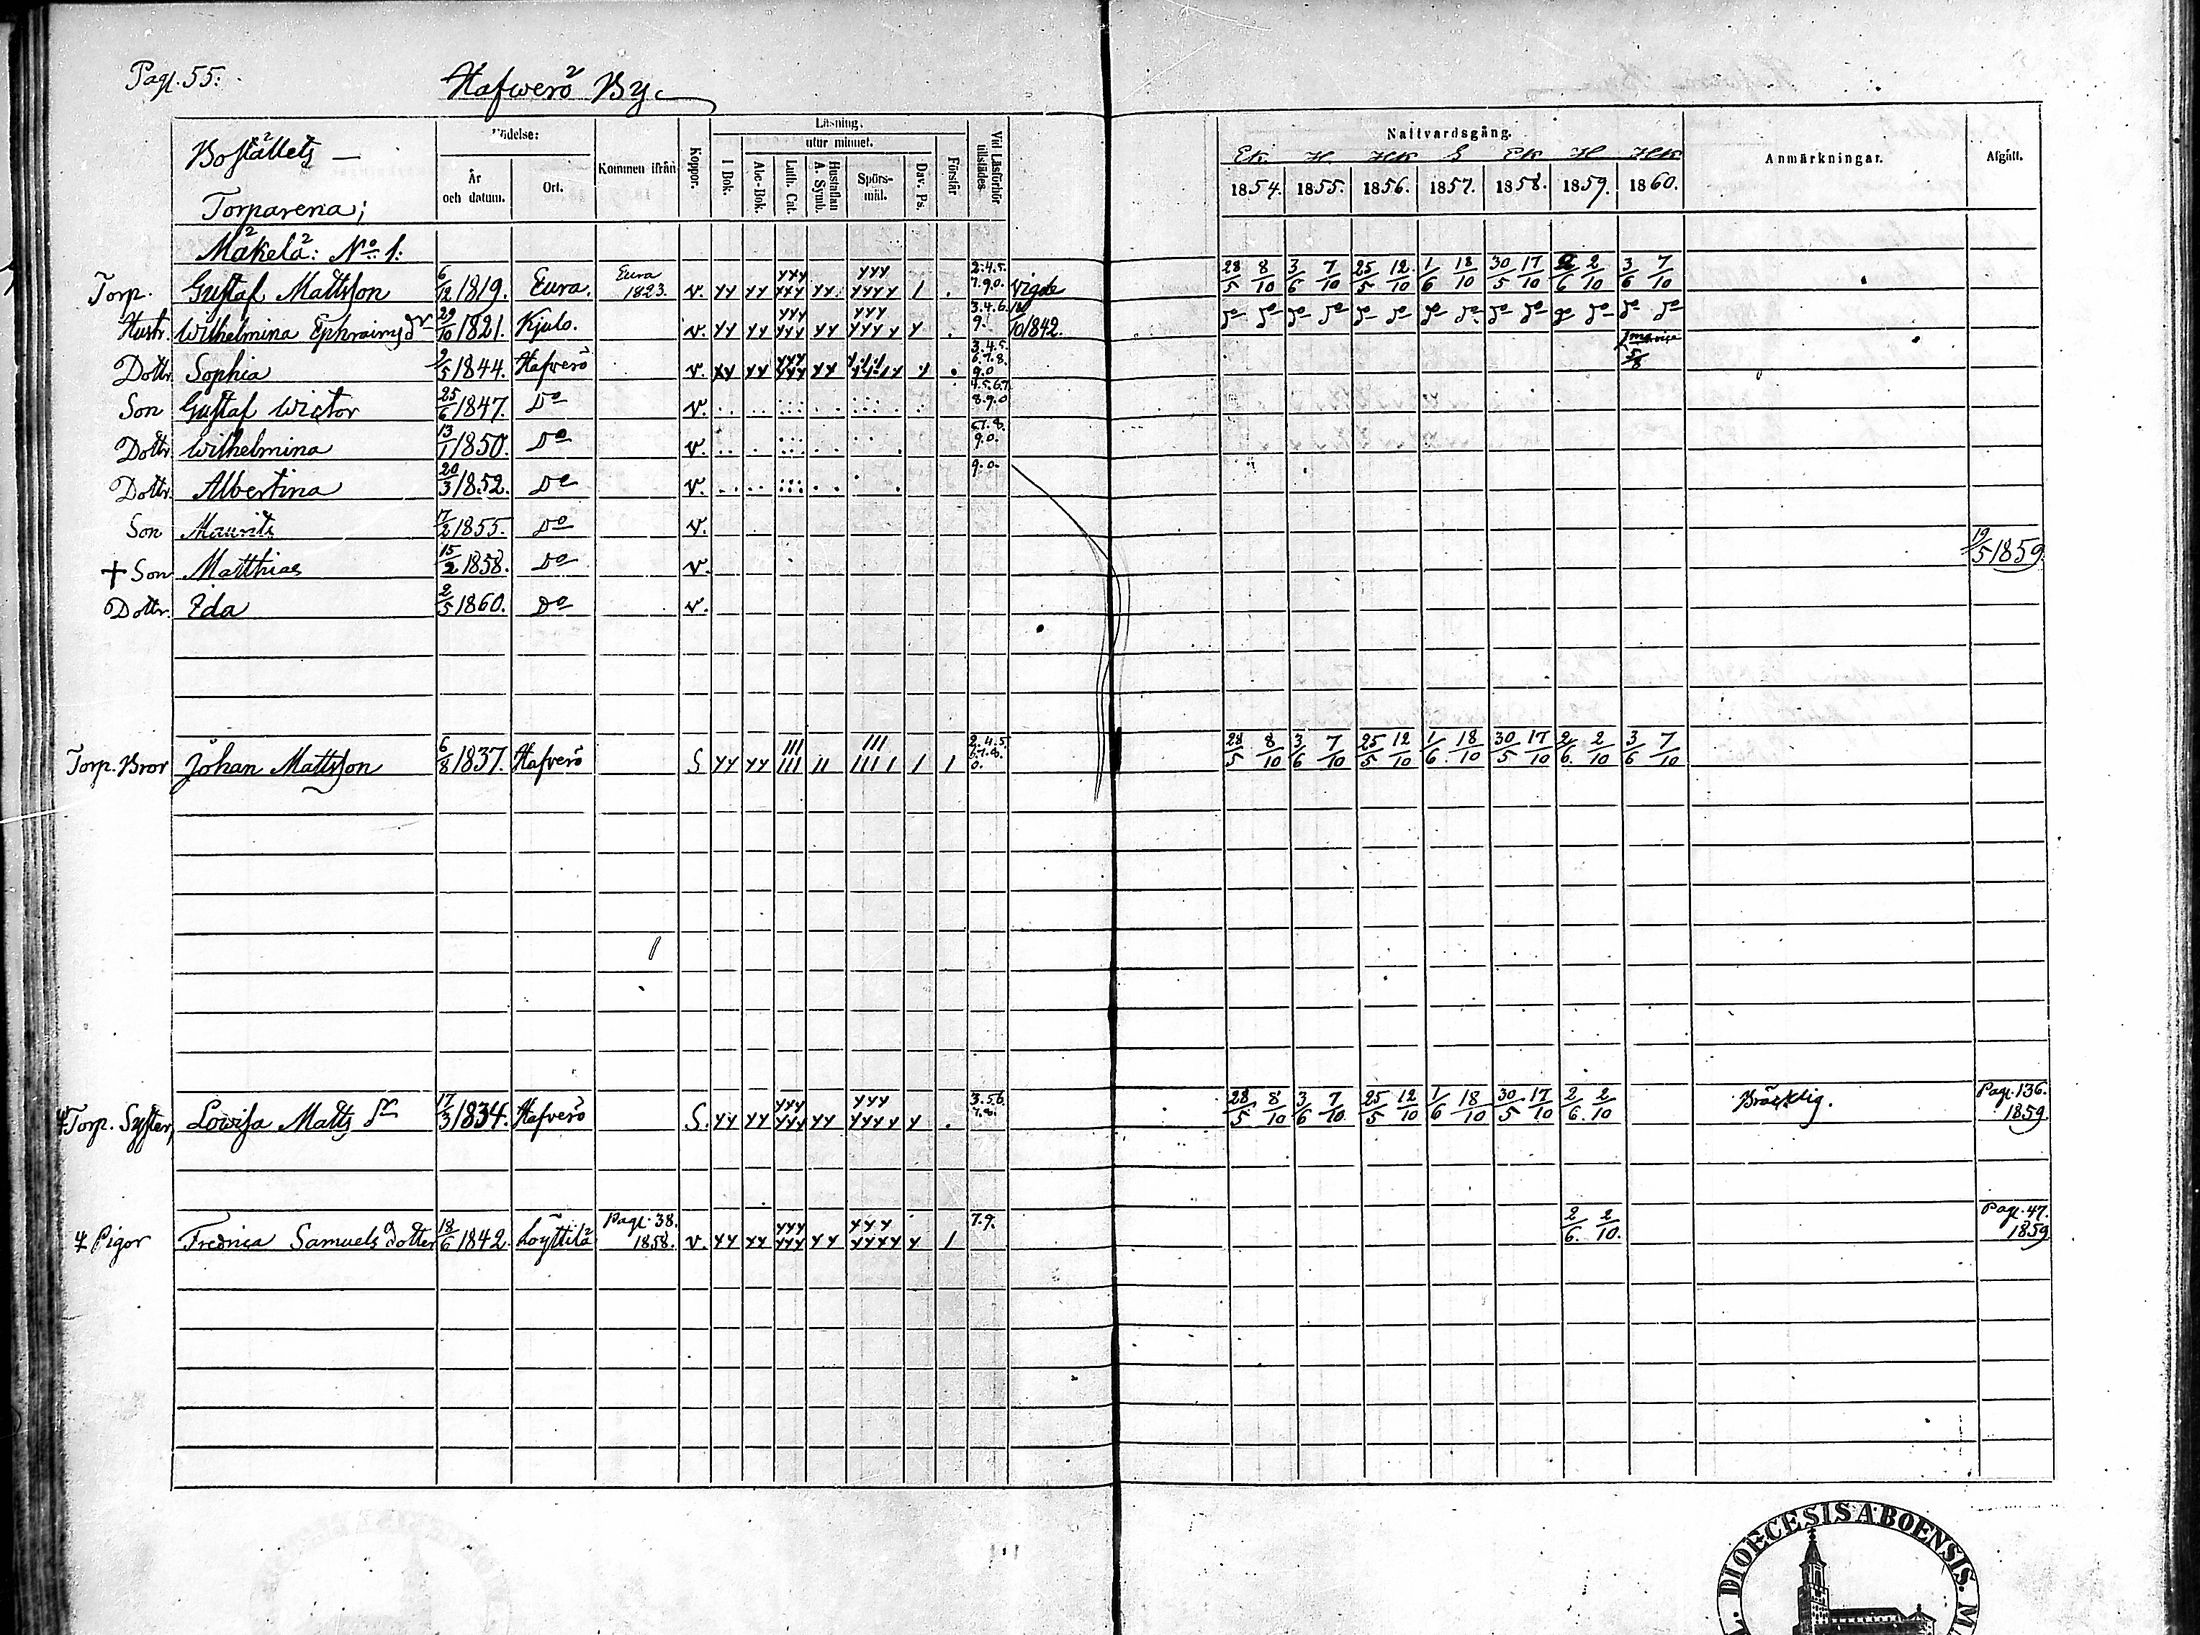 Pag. 55.
Hafwerö By.
Boställets
Torparena;
Födelse:
År och datum.
Ort.
Kommen ifrån
Koppor.
Läsning.
I Bok.
utur minnet.
Abc-Bok.
Luth. Cat.
Hustaflan A. Symb.
Spörs-mål.
Dav. Ps.
Förstår
Vid Läsförhör tillstädes.
Nattvardsgång.
Ek H HK S Ek H HK
1854. 1855. 1856. 1857. 1858. 1859. 1860.
Anmärkningar.
Afgått.
Mäkelä: No 1:
Torp. Gustaf Mattsson 6/12 1819. Eura. Eura 1823. v. yy yy yyy yyy yy yyy yyyy 1 . 2.4.5. 7.9.0. vigde 28/5 8/10 3/6 7/10 25/5 12/10 1/6 18/10 30/5 17/10 2/6 2/10 3/6 7/10
Hustr. Wilhelmina Ephraimsdr 29/10 1821. Kjulo. v. yy yy yyy yyy yy yyy yyyy y . 3.4.6. 9. /10 1842. Do Do Do Do Do Do Do Do Do Do Do Do Do Do
Dottr. Sophia 2/5 1844. Hafverö v. yy yy yyy yyy yy y . 3.4.5. 6.7.8. 9.0 5/8
Son Gustaf Wictor 25/6 1847. Do v. 4.5.6.7. 8.9.0
Dottr. Wilhelmina 13/1 1850. Do v. 6.7.8. 9.0.
Dottr. Albertina 20/3 1852. Do v. 9.0.
Son Maurits 17/2 1855. Do v.
+ Son Matthias 15/2 1858. Do v. 19/5 1859.
Dottr. Ida 2/5 1860. Do v.
Torp. Bror Johan Mattsson 6/8 1837. Hafverö S yy yy 111 111 11 111 1111 1 1 2.4.5. 6.7.8. 0. 28/5 8/10 3/6 7/10 25/5 12/10 1/6 18/10 30/5 17/10 2/6 2/10 3/6 7/10
Torp. Syster, Lowisa Matts dr 17/3 1834. Hafverö S. yy yy yyy yyy yy yyy yyyy y . 3.5.6. 7.8. 28/5 8/10 3/6 7/10 25/5 12/10 1/6 18/10 30/5 17/10 2/6. 2/10 Bräcklig. Pag. 136. 1859.
Pigor Fredrica Samuels dotter 18/6 1842. Löyttilä Pag. 38. 1858. v. yy yy yyy yyy yy yyy yyyy y 1 7.9. 2/6. 2/10. Pag. 47. 1859
DIOECESIS ABOENSIS.